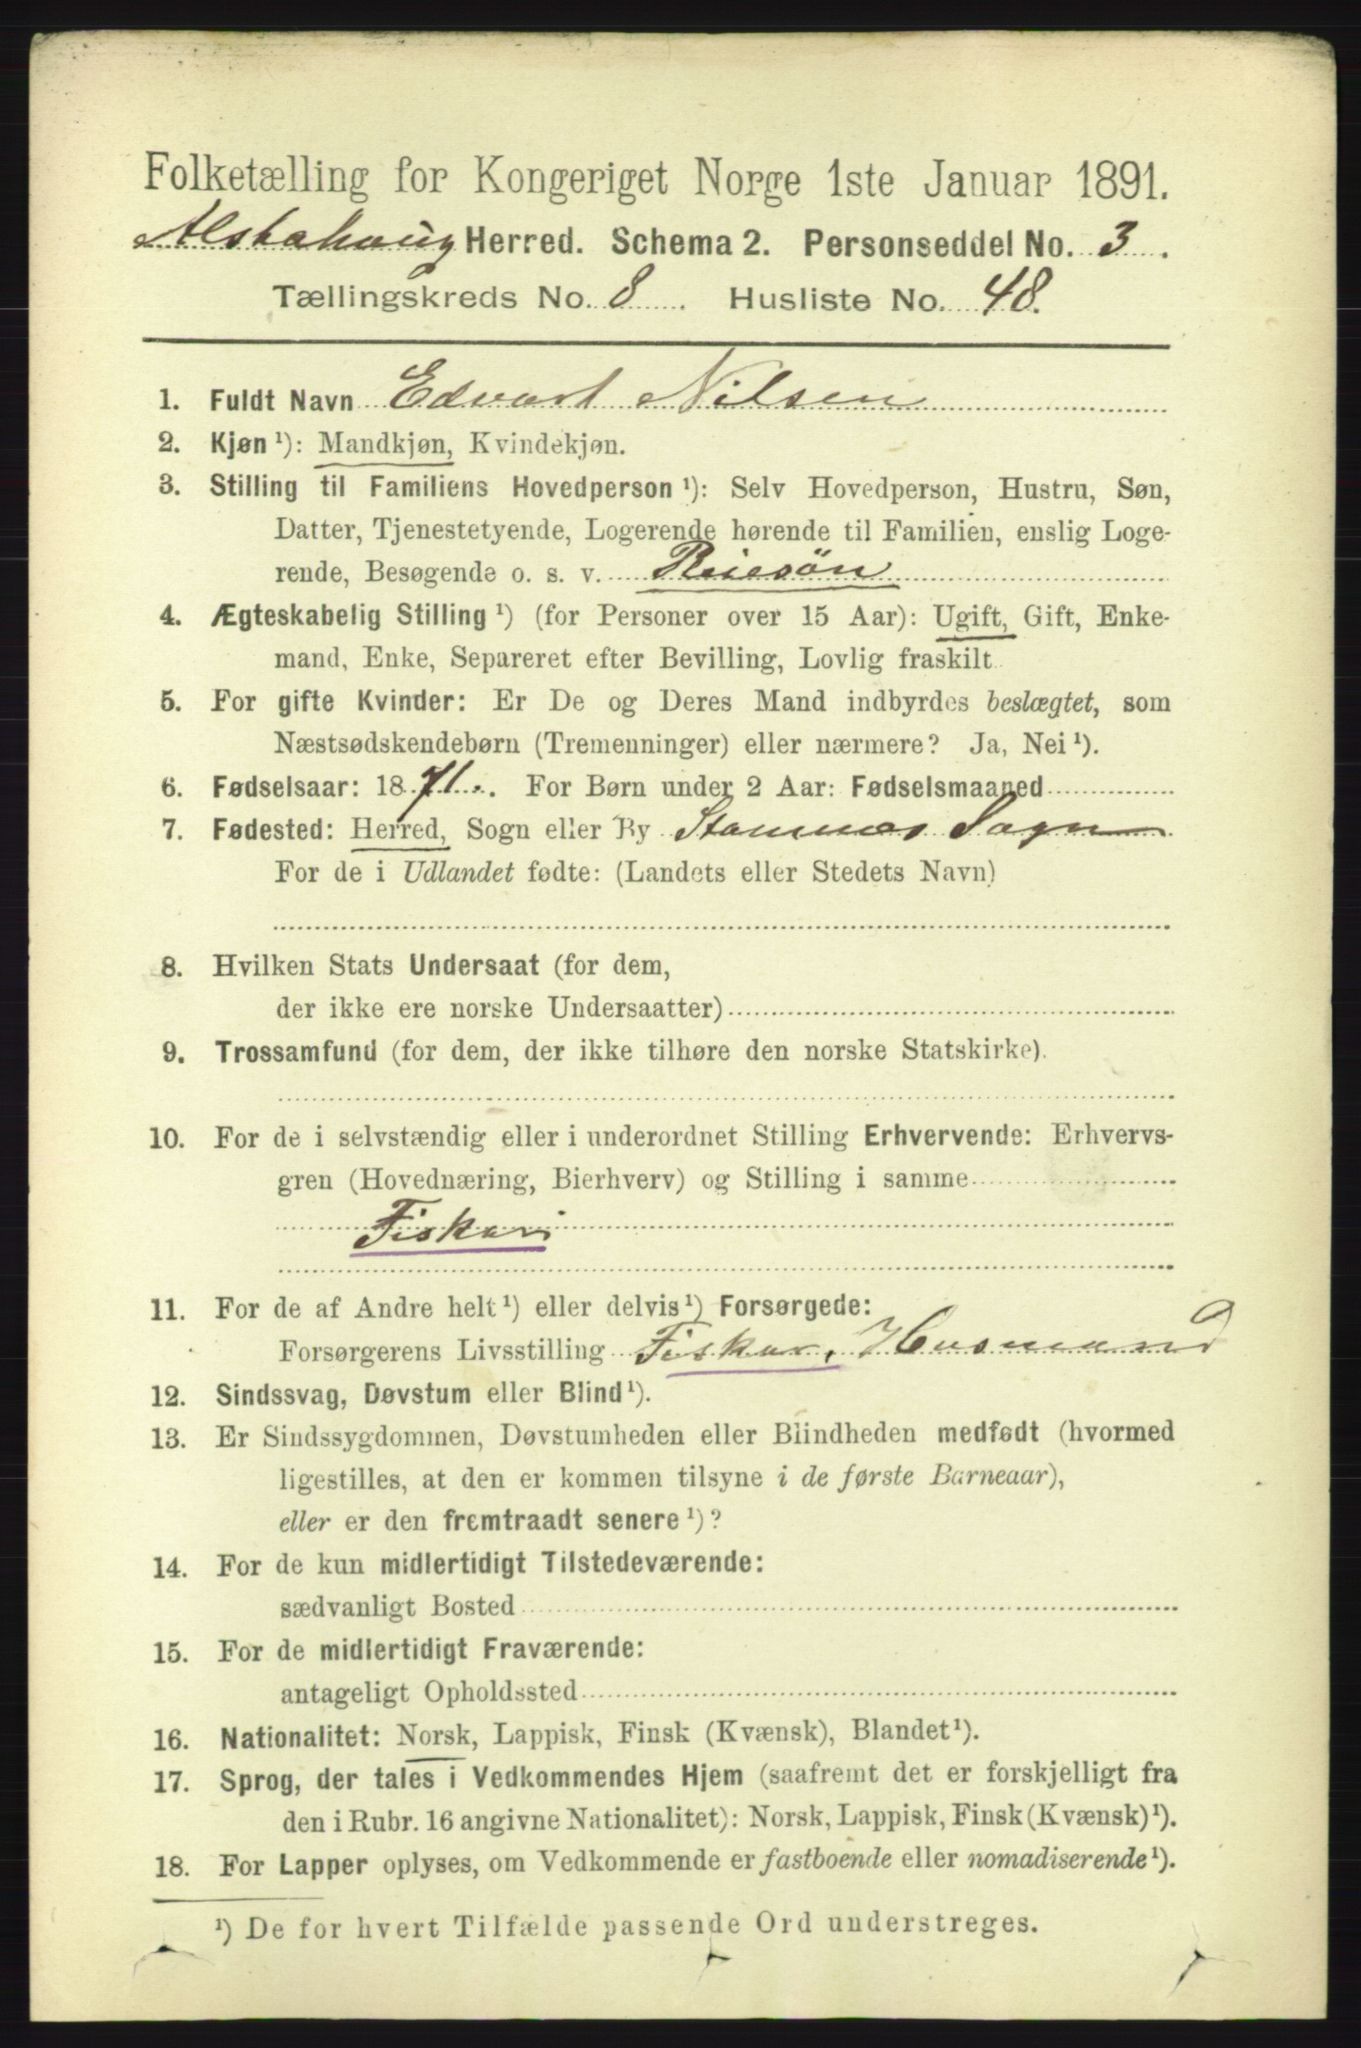 Folketælling for Kongeriget Norge 1ste Januar 1891.
Alstahoug Herred. Schema 2. Personseddel No. 3.
Tællingskreds No. 8. Husliste No. 48.
1. Fuldt Navn Edvart Nilsen
2. Kjøn ¹): Mandkjøn, Kvindekjøn.
3. Stilling til Familiens Hovedperson ¹): Selv Hovedperson, Hustru, Søn,
Datter, Tjenestetyende, Logerende hørende til Familien, enslig Loge-
rende, Besøgende o. s. v. Pleiesön
4. Ægteskabelig Stilling ¹) (for Personer over 15 Aar): Ugift, Gift, Enke-
mand, Enke, Separeret efter Bevilling, Lovlig fraskilt.
5. For gifte Kvinder: Er De og Deres Mand indbyrdes beslægtet, som
Næstsødskendebørn (Tremenninger) eller nærmere? Ja, Nei ¹).
6. Fødselsaar: 1871. For Børn under 2 Aar: Fødselsmaaned
7. Fødested: Herred, Sogn eller By Stamnes Sogn
For de i Udlandet fødte: (Landets eller Stedets Navn)
8. Hvilken Stats Undersaat (for dem,
der ikke ere norske Undersaatter)
9. Trossamfund (for dem, der ikke tilhøre den norske Statskirke).
10. For de i selvstændig eller i underordnet Stilling Erhvervende: Erhvervs-
gren (Hovednæring, Bierhverv) og Stilling i samme
Fiskeri
11. For de af Andre helt ¹) eller delvis ¹) Forsørgede:
Forsørgerens Livsstilling Fisker, Husmand
12. Sindssvag, Døvstum eller Blind ¹).
13. Er Sindssygdommen, Døvstumheden eller Blindheden medfødt (hvormed
ligestilles, at den er kommen tilsyne i de første Barneaar),
eller er den fremtraadt senere ¹)?
14. For de kun midlertidigt Tilstedeværende:
sædvanligt Bosted
15. For de midlertidigt Fraværende:
antageligt Opholdssted
16. Nationalitet: Norsk, Lappisk, Finsk (Kvænsk), Blandet ¹).
17. Sprog, der tales i Vedkommendes Hjem (saafremt det er forskjelligt fra
den i Rubr. 16 angivne Nationalitet): Norsk, Lappisk, Finsk (Kvænsk) ¹).
18. For Lapper oplyses, om Vedkommende er fastboende eller nomadiserende ¹).
¹) De for hvert Tilfælde passende Ord understreges.